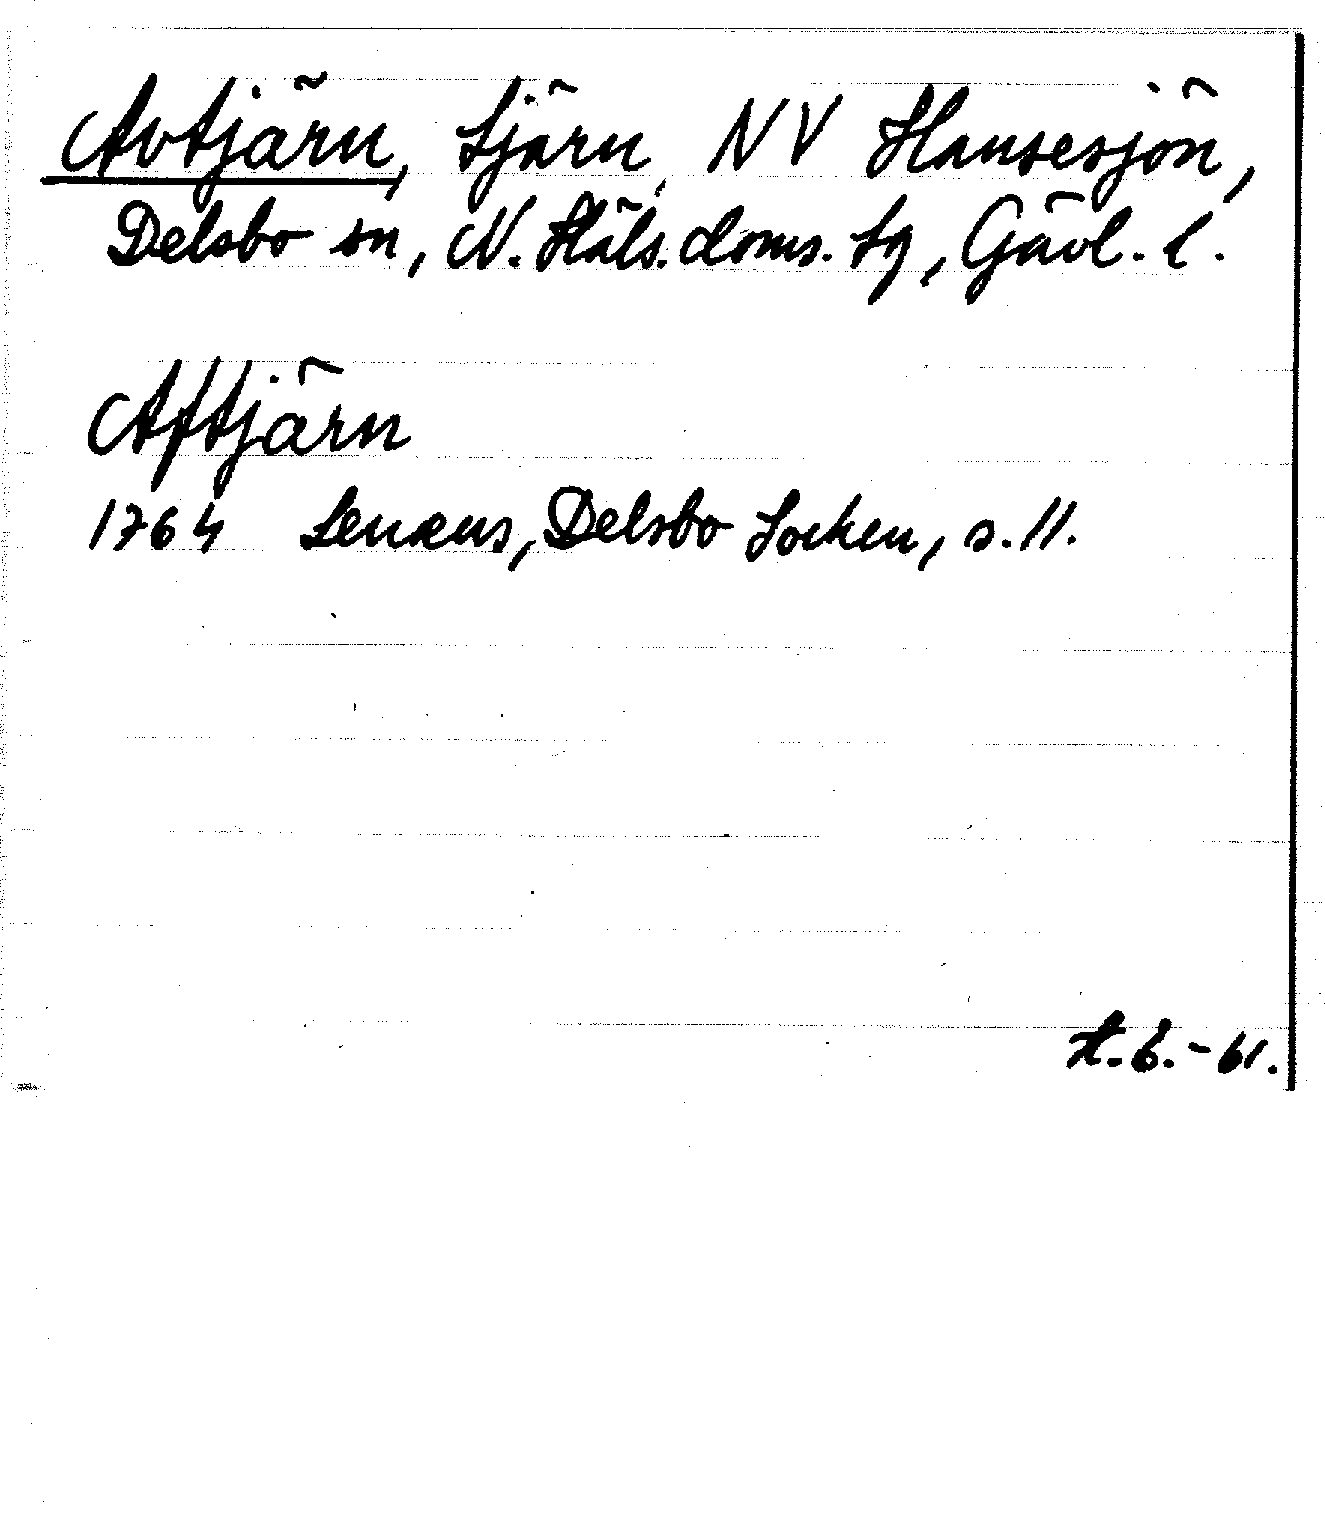 Avtjärn, tjärn, NV Hansesjön,
Delsbo sn, N. Häls. doms. tg, Gävl. l.
Aftjärn
1764 Lenæus, Delsbo Socken, s. 11.
t. b. - 61.